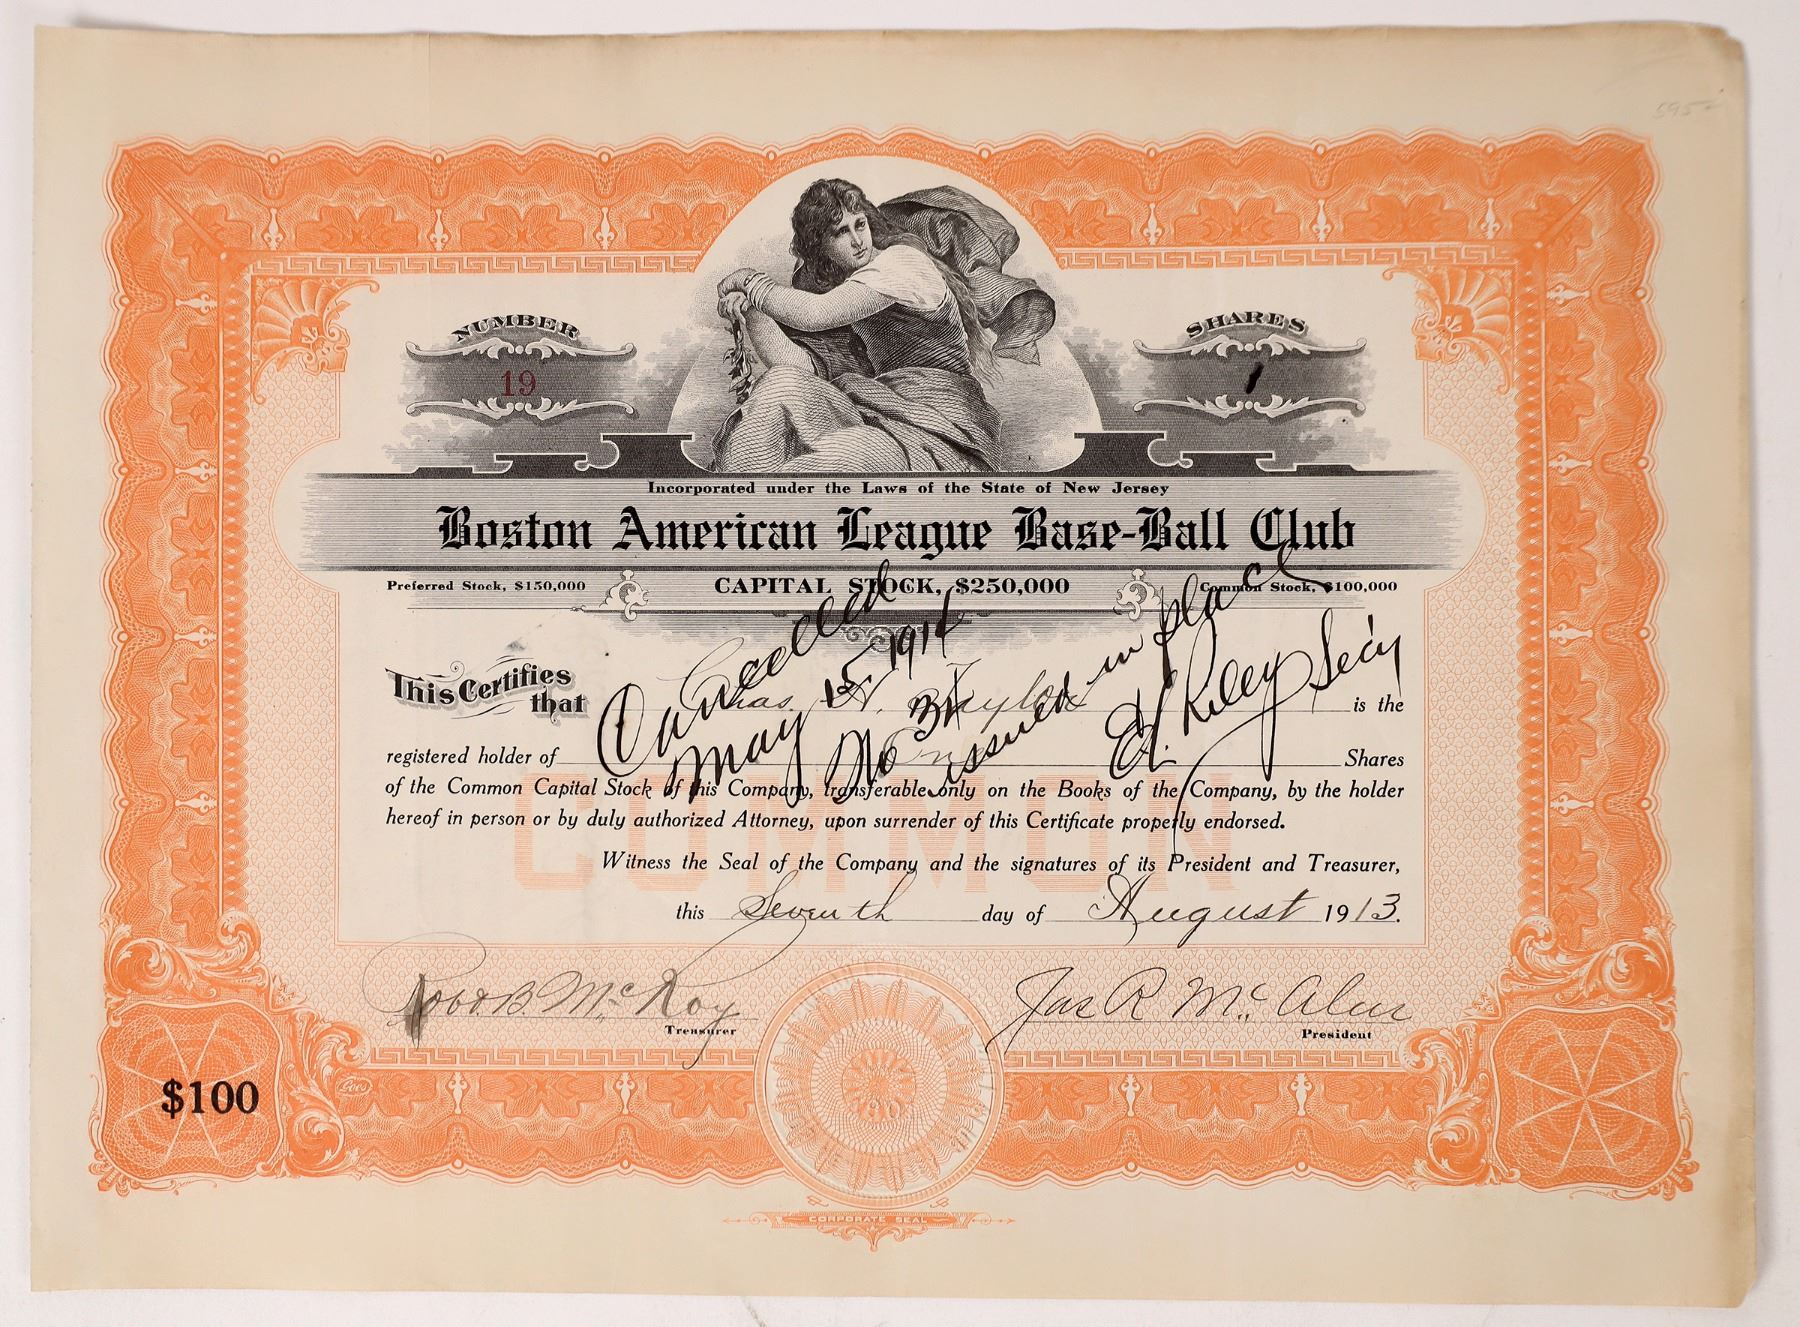 595
NUMBER
SHARES
19
1
Incorporated under the Laws of the State of New Jersey
Boston American League Base-Ball Club
Preferred Stock, $150,000
CAPITAL STOCK, $250,000
Common Stock, $100,000
This Certifies that
Chas. H. Taylor
is the
registered holder of One Shares
of the Common Capital Stock of this Company, transferable only on the Books of the Company, by the holder
hereof in person or by duly authorized Attorney, upon surrender of this Certificate properly endorsed.
COMMON
Cancelled
May 15 1914
No 31
issued in place
E. Riley Sec'y
Witness the Seal of the Company and the signatures of its President and Treasurer,
this Seventh day of August 1913.
Robt. B. McRoy
Treasurer
Jas R McAleer
President
$100
Goes
CORPORATE SEAL